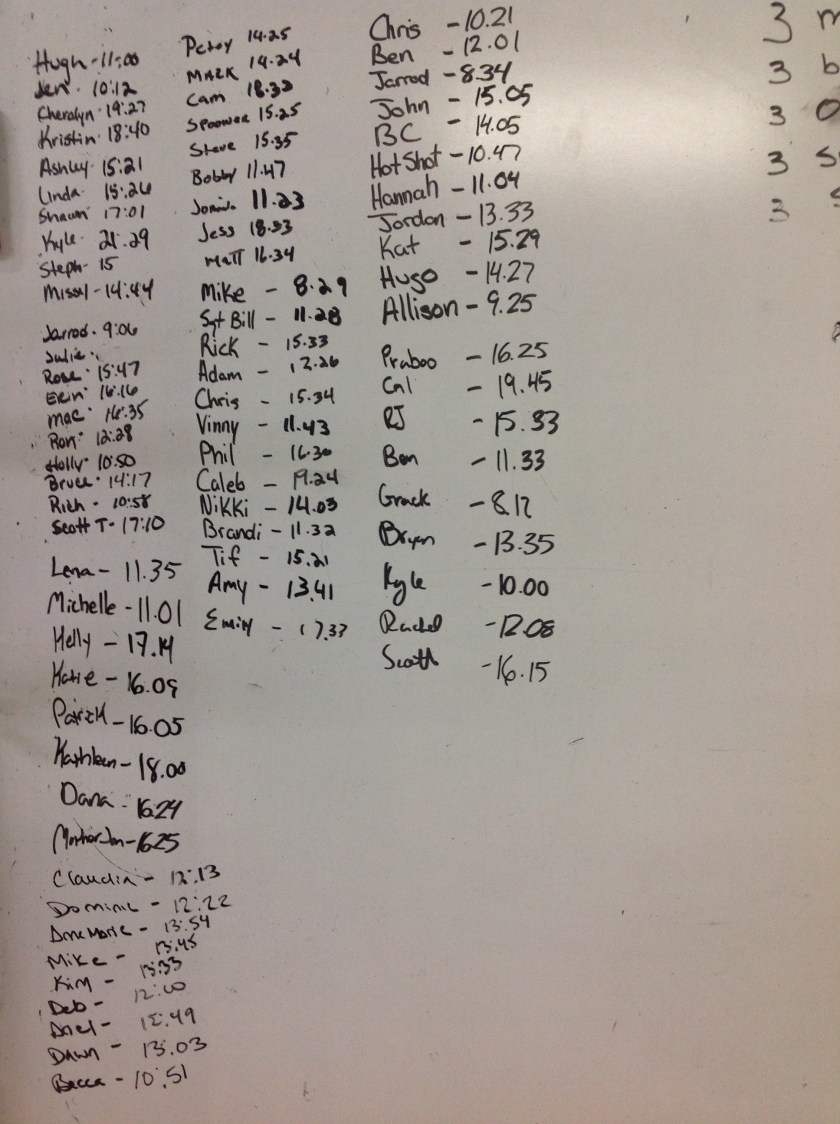 Hugh - 11:00
Jen 10:12
Cheralyn 19:27
Kristin 18:40
Ashley 15:21
Linda 15:26
Shawn 17:01
Kyle 21:29
Steph - 15
Missy - 14:44
Jarrod - 9:06
Julie
Rose 15:47
Erin 16:16
Mac 16:35
Ron 12:28
Holly 10:50
Bruce 14:17
Rich - 10:58
Scott T - 17:10
Lena - 11.35
Michelle - 11.01
Helly - 17.14
Katie - 16.09
Patrick - 16.05
Kathleen - 18.00
Dana - 16.24
- 16.25
Claudia - 12:13
Dominic - 12:22
AnneMarie - 13:54
Mike - 13:45
Kim - 13:33
Deb - 12:00
Ariel - 12:49
Dawn - 13:03
Becca - 10:51
Petey 14.25
Mark 14.24
Cam 18.32
Spooner 15.25
Steve 15.35
Bobby 11.47
11.23
Jess 18.53
Matt 16.34
Mike - 8.29
Sgt Bill - 11.28
Rick - 15.33
Adam - 12.26
Chris - 15.34
Vinny - 11.43
Phil - 16.30
Caleb - 19.24
Nikki - 14.03
Brandi - 11.32
Tif - 15.21
Amy - 13.41
Emily - 17.37
Chris - 10.21
Ben - 12.01
Jarrod - 8.34
John - 15.05
BC - 14.05
Hot Shot - 10.47
Hannah - 11.04
Jordan - 13.33
Kat - 15.29
Hugo - 14.27
Allison - 9.25
Praboo - 16.25
Cal - 19.45
RJ - 15.33
Ben - 11.33
- 8.12
Bryan - 13.35
Kyle - 10.00
Rachel - 12.08
Scott - 16.15
3 m
3 b
3
3 s
3 s